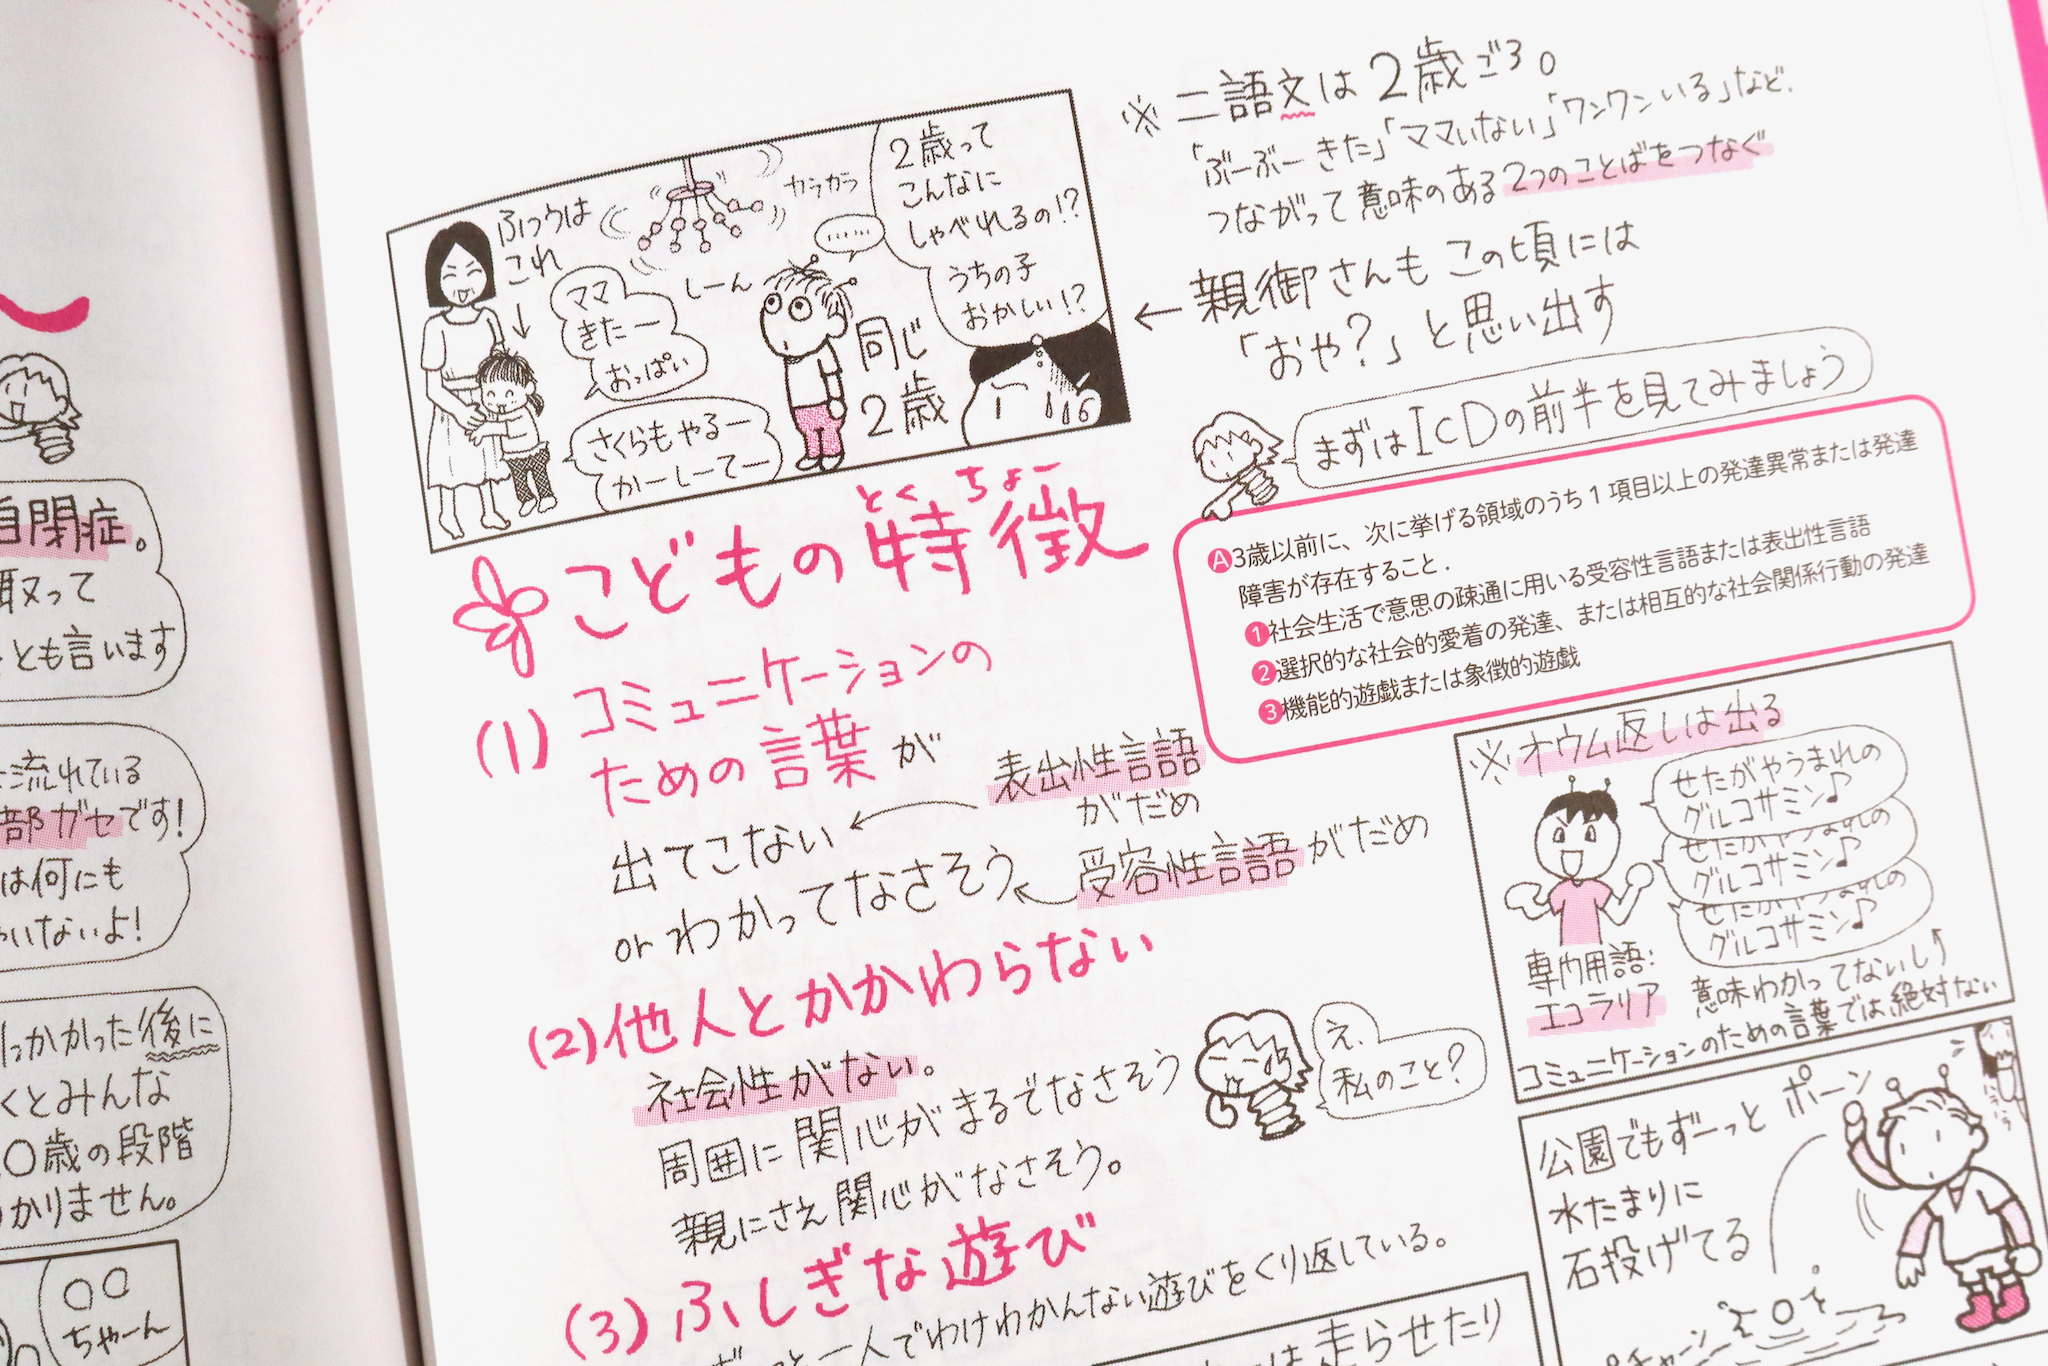 自閉症。
取って
とも言います
流れている
部ガセです!
は何にも
いないよ!
っかかった後に
くとみんな
〇歳の段階
かりません。
〇〇
ちゃーん
ふつうは
これ
ママ
きたー
おっぱい
さくらもやるー
かーしーてー
カラカラ
しーん
……
同じ
2歳
2歳って
こんなに
しゃべれるの!?
うちの子
おかしい!?
※二語文は2歳ごろ。
「ぶーぶー きた」「ママいない」「ワンワン いる」など.
つながって意味のある2つのことばをつなぐ
←親御さんもこの頃には
「おや?」と思い出す
まずはICDの前半を見てみましょう
A3歳以前に、次に挙げる領域のうち1項目以上の発達異常または発達
障害が存在すること.
1社会生活で意思の疎通に用いる受容性言語または表出性言語
2選択的な社会的愛着の発達、または相互的な社会関係行動の発達
3機能的遊戯または象徴的遊戯
とくちょー
こどもの特徴
(1)コミュニケーションの
ための言葉が
出てこない←表出性言語
がだめ
orわかってなさそう←受容性言語がだめ
(2)他人とかかわらない
社会性がない。
周囲に関心がまるでなさそう
親にさえ関心がなさそう。
え、
私のこと?
(3)ふしぎな遊び
一人でわけわかんない遊びをくり返している。
は走らせたり
※オウム返しは出る
せたがやうまれの
グルコサミン♪
せたがやうまれの
グルコサミン♪
せたがやうまれの
グルコサミン♪
専門用語:
エコラリア
意味わかってないし↑
コミュニケーションのための言葉では絶対ない
公園でもずーっと
水たまりに
石投げてる
ポーン